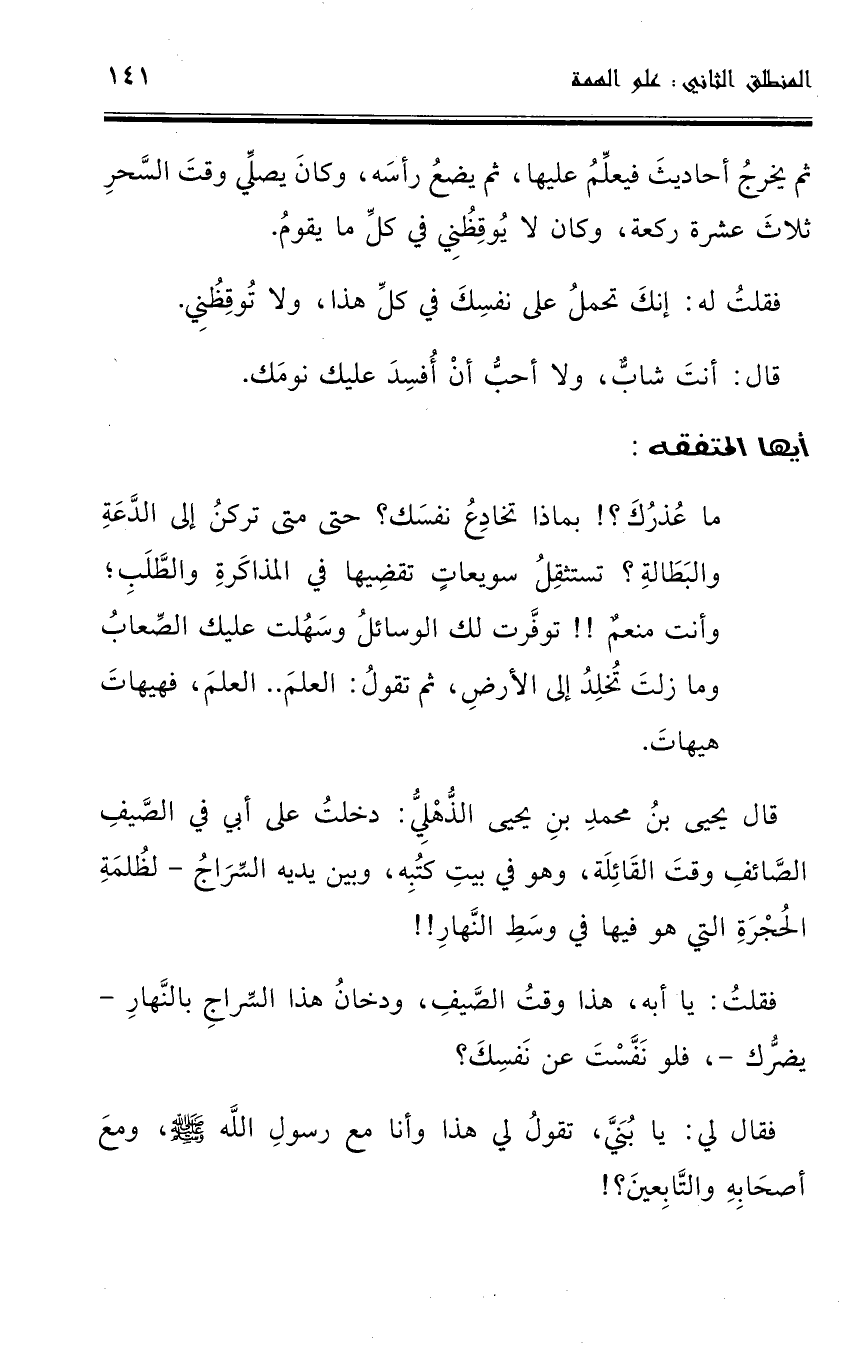 المنطلق الثاني : علو الهمة ١٤١
ثم يخرجُ أحاديثَ فيعلِّمُ عليها، ثم يضعُ رأسَه، وكانَ يصلِّي وقتَ السَّحرِ
ثلاثَ عشرة ركعة، وكان لا يُوقِظُني في كلِّ ما يقومُ.
فقلتُ له: إنكَ تحملُ على نفسِكَ في كلِّ هذا، ولا تُوقِظُني.
قال: أنتَ شابٌّ، ولا أحبُّ أنْ أُفسِدَ عليك نومَك.
أيها المتفقه :
ما عُذرُكَ؟! بماذا تخادِعُ نفسَك؟ حتى متى تركنُ إلى الدَّعَةِ
والبَطَالةِ؟ تستثقِلُ سويعاتٍ تقضِيها في المذاكَرةِ والطَّلَبِ؛
وأنت منعمٌ !! توفَّرت لك الوسائلُ وسَهُلت عليك الصِّعابُ
وما زلتَ تُخلِدُ إلى الأرضِ، ثم تقولُ: العلمَ.. العلمَ، فهيهاتَ
هيهاتَ.
قال يحيى بنُ محمدِ بنِ يحيى الذُّهْليُّ: دخلتُ على أبي في الصَّيفِ
الصَّائفِ وقتَ القَائِلَة، وهو في بيتِ كتُبِه، وبين يديه السِّرَاجُ – لظُلمَةِ
الحُجْرَةِ التي هو فيها في وسَطِ النَّهارِ!!
فقلتُ: يا أبه، هذا وقتُ الصَّيفِ، ودخانُ هذا السِّراجِ بالنَّهارِ –
يضرُّك –، فلو نَفَّسْتَ عن نَفسِكَ؟
فقال لي: يا بُنَيَّ، تقولُ لي هذا وأنا مع رسولِ اللَّه ﷺ، ومعَ
أصحَابِهِ والتَّابِعينَ؟!